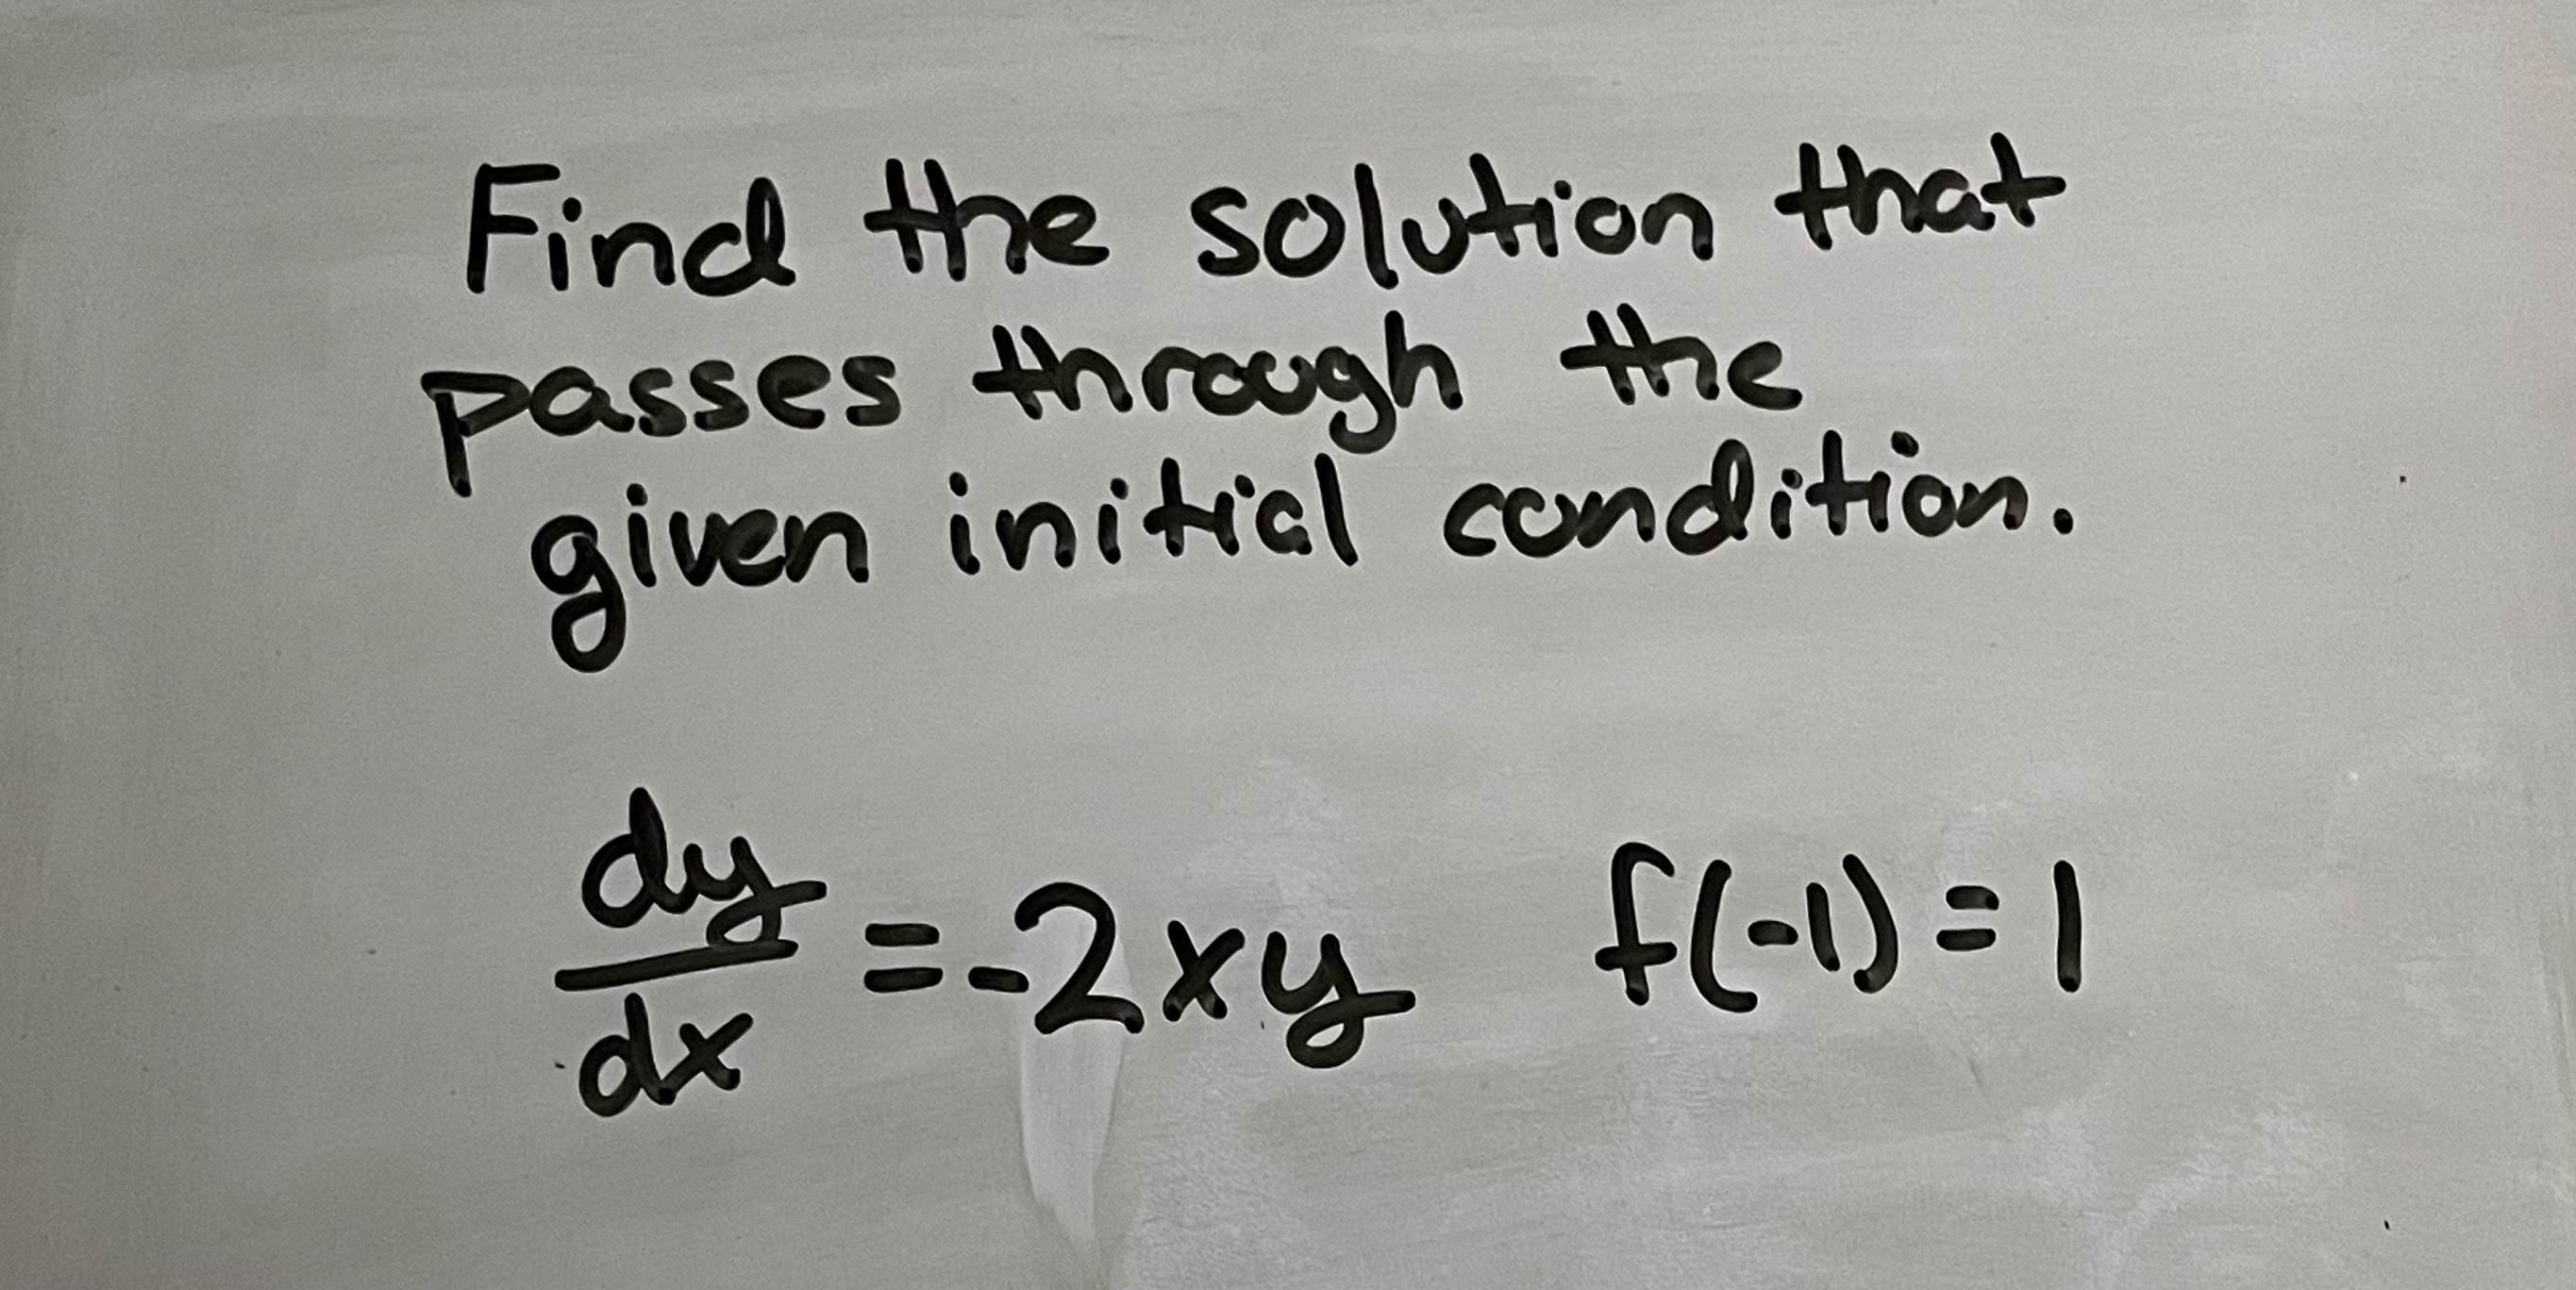 Find the solution that
passes through the
given initial condition.
dy/dx = -2xy f(-1) = 1